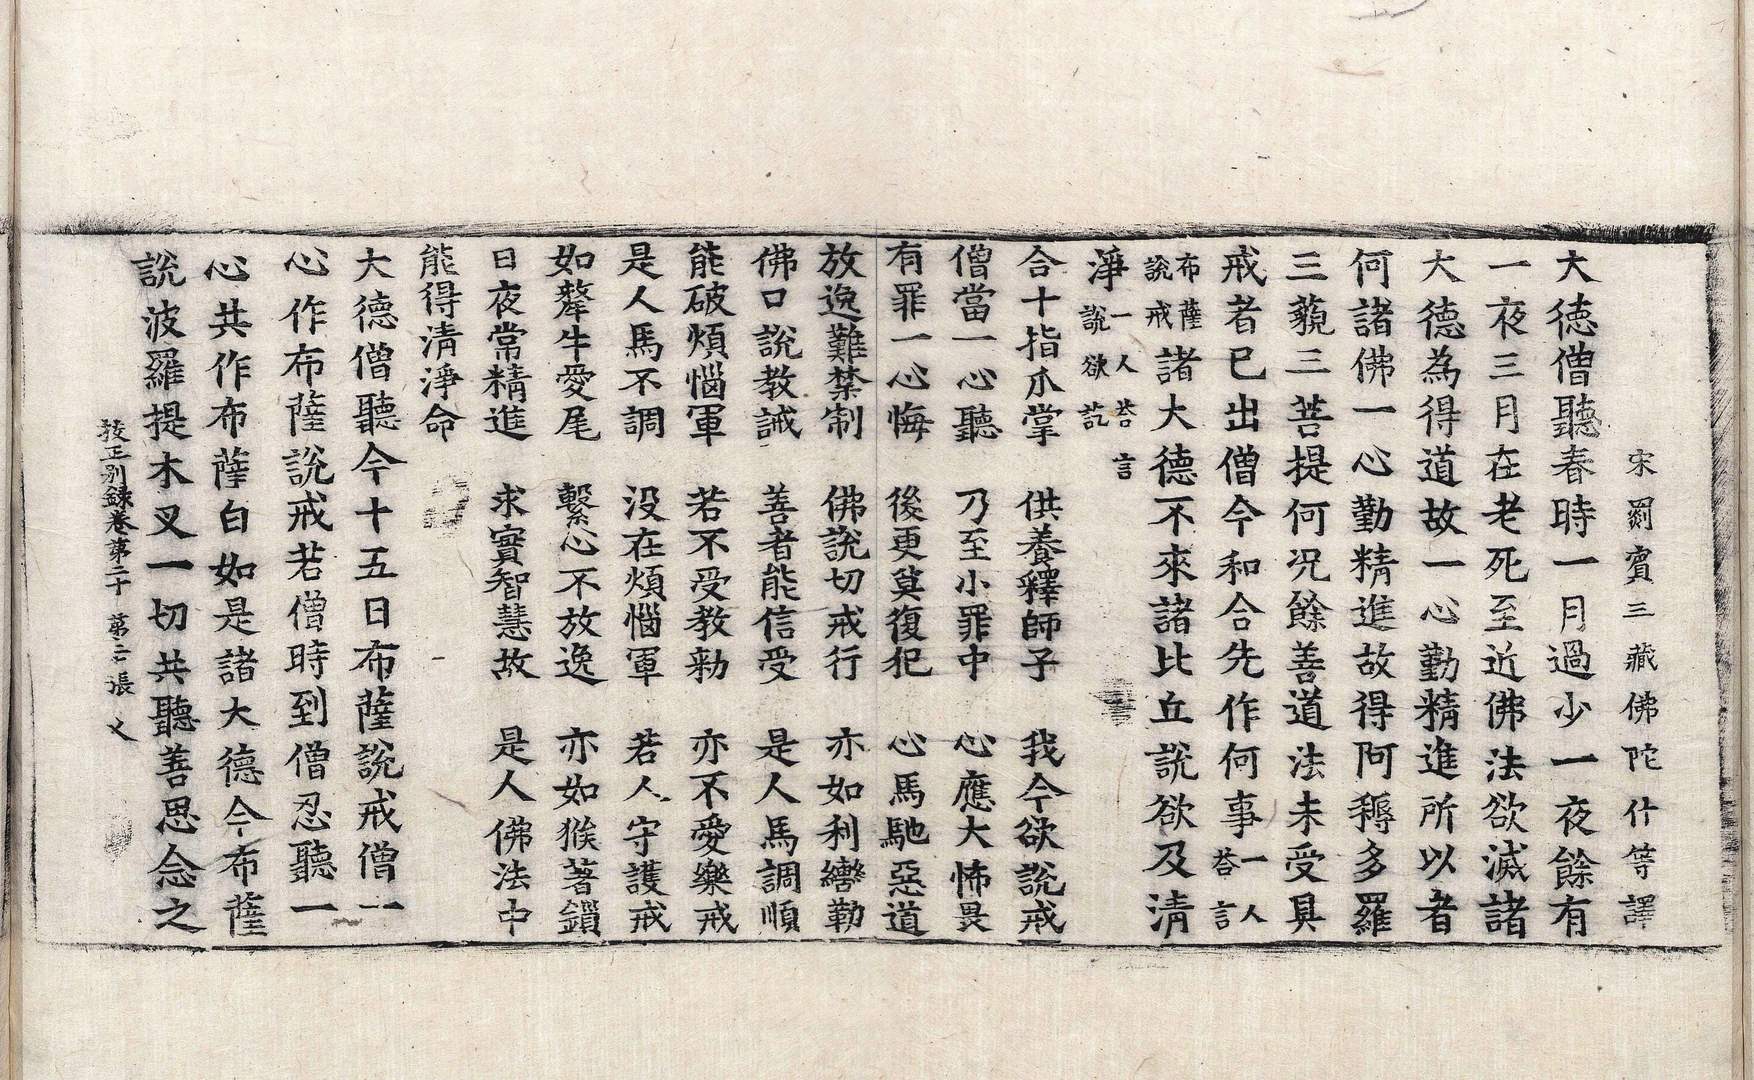 宋罽賓三藏佛陀什等譯
大德僧聽春時一月過少一夜餘有
一夜三月在老死至近佛法欲滅諸
大德為得道故一心勤精進所以者
何諸佛一心勤精進故得阿耨多羅
三藐三菩提何況餘善道法未受具
戒者已出僧今和合先作何事一人荅言
布薩說戒諸大德不來諸比丘說欲及清
淨一人荅言說欲訖
合十指爪掌 供養釋師子 我今欲說戒
僧當一心聽 乃至小罪中 心應大怖畏
有罪一心悔 後更莫復犯 心馬馳惡道
放逸難禁制 佛說切戒行 亦如利轡勒
佛口說教誡 善者能信受 是人馬調順
能破煩惱軍 若不受教勑 亦不愛樂戒
是人馬不調 沒在煩惱軍 若人守護戒
如犛牛愛尾 繫心不放逸 亦如猴著鎖
日夜常精進 求實智慧故 是人佛法中
能得清淨命
大德僧聽今十五日布薩說戒僧一
心作布薩說戒若僧時到僧忍聽一
心共作布薩白如是諸大德今布薩
說波羅提木叉一切共聽善思念之
挍正別録卷第二十 第二張 乂